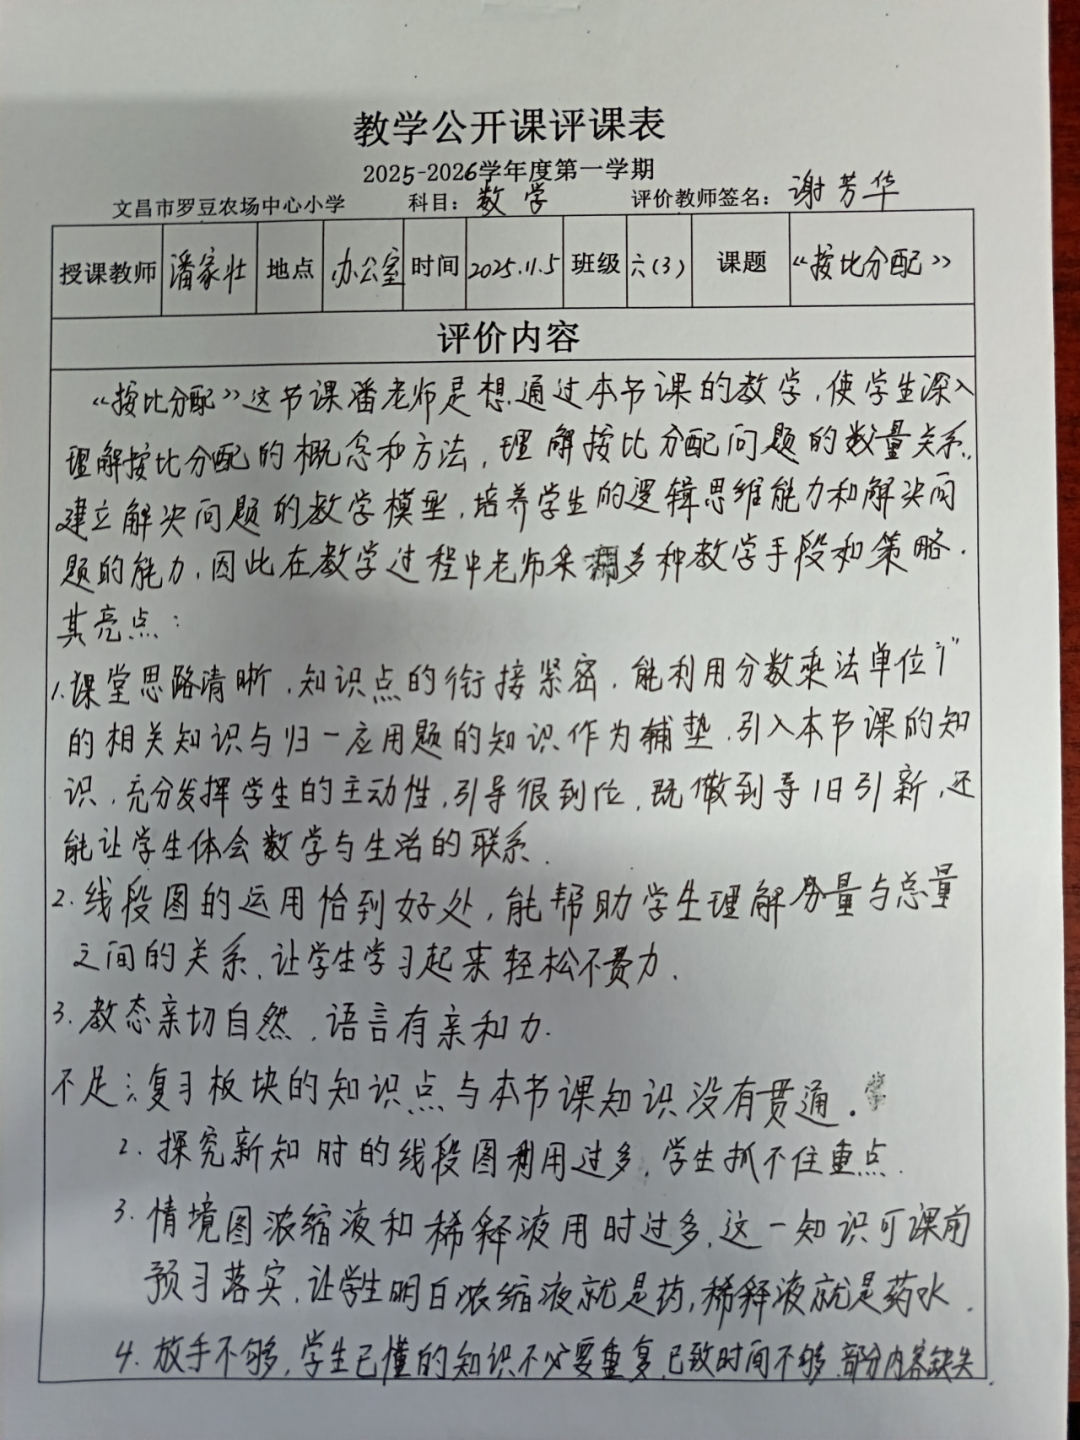 教学公开课评课表
2025-2026学年度第一学期
文昌市罗豆农场中心小学 科目：数学 评价教师签名：谢芳华
授课教师 潘家壮 地点 办公室 时间 2025.11.5 班级 六(3) 课题 《按比分配》
评价内容
《按比分配》这节课潘老师是想通过本节课的教学，使学生深入
理解按比分配的概念和方法，理解按比分配问题的数量关系，
建立解决问题的数学模型，培养学生的逻辑思维能力和解决问
题的能力，因此在教学过程中老师采用多种教学手段和策略.
其亮点：
1.课堂思路清晰，知识点的衔接紧密，能利用分数乘法单位“1”
的相关知识与归一应用题的知识作为辅垫，引入本节课的知
识，充分发挥学生的主动性，引导很到位，既做到导旧引新，还
能让学生体会数学与生活的联系.
2.线段图的运用恰到好处，能帮助学生理解分量与总量
之间的关系，让学生学习起来轻松不费力.
3.教态亲切自然，语言有亲和力.
不足：复习板块的知识点与本节课知识没有贯通.
2.探究新知时的线段图利用过多，学生抓不住重点.
3.情境图浓缩液和稀释液用时过多，这一知识可课前
预习落实，让学生明白浓缩液就是药，稀释液就是药水.
4.放手不够，学生已懂的知识不必要重复，已致时间不够，部分内容缺失.